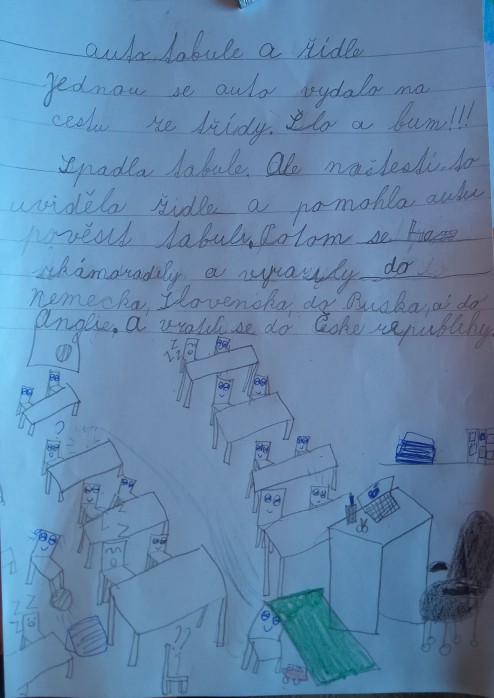 auto tabule a židle
Jednou se auto vydalo na
cestu ze třídy. Šlo a bum!!!
Spadla tabule. Ale naštestí to
uviděla židle a pomohla autu
pověsit tabuli. Potom se
skámoradily a vyrazily do
Nemecka, Slovenska, do Ruska, až do
Anglie. A vratili se do České republiky.
z z z
?
z z
z z
z z
? ?